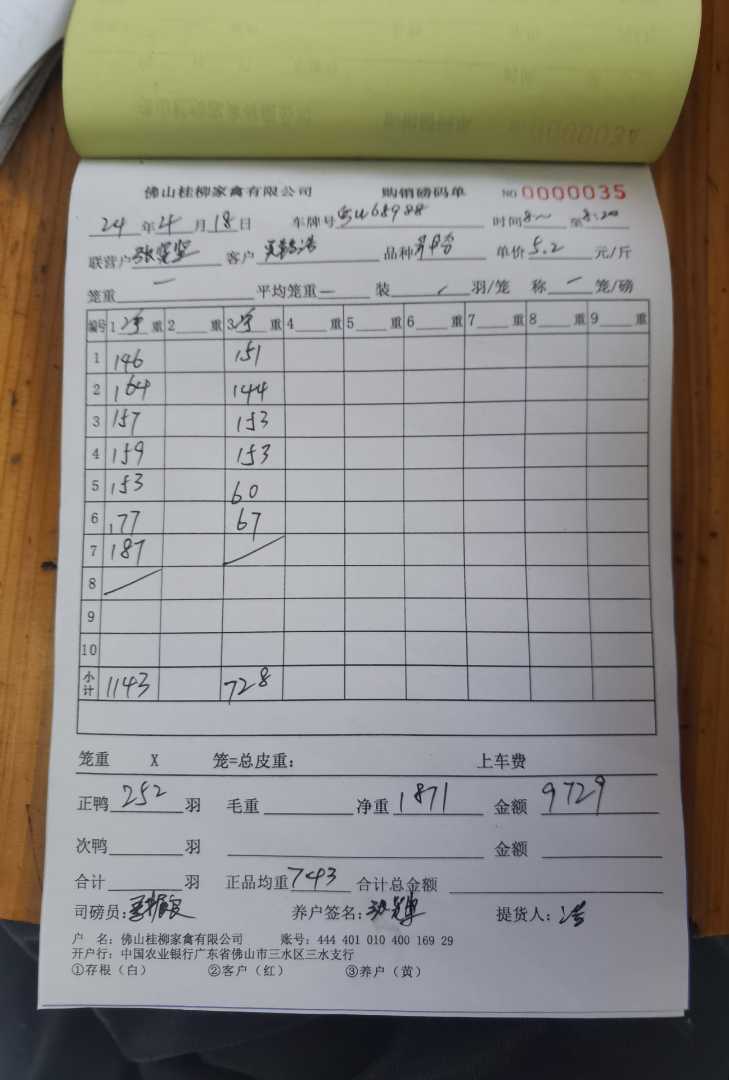 佛山桂柳家禽有限公司 购销磅码单 NO 0000035
24 年 4 月 18 日 车牌号 68988 时间 8~ 至 8:20
联营户 张 客户 品种 单价 5.2 元/斤
笼重 一 平均笼重 一 装 / 羽/笼 称 一 笼/磅
编号 1 重 2 重 3 重 4 重 5 重 6 重 7 重 8 重 9 重
1 146 151
2 164 144
3 157 153
4 159 153
5 153 60
6 177 67
7 187 /
8 /
9
10
小计 1143 728
笼重 X 笼=总皮重: 上车费
正鸭 252 羽 毛重 净重 1871 金额 9729
次鸭 羽 金额
合计 羽 正品均重 743 合计总金额
司磅员: 养户签名: 提货人: 浩
户 名: 佛山桂柳家禽有限公司 账号: 444 401 010 400 169 29
开户行: 中国农业银行广东省佛山市三水区三水支行
①存根(白) ②客户(红) ③养户(黄)